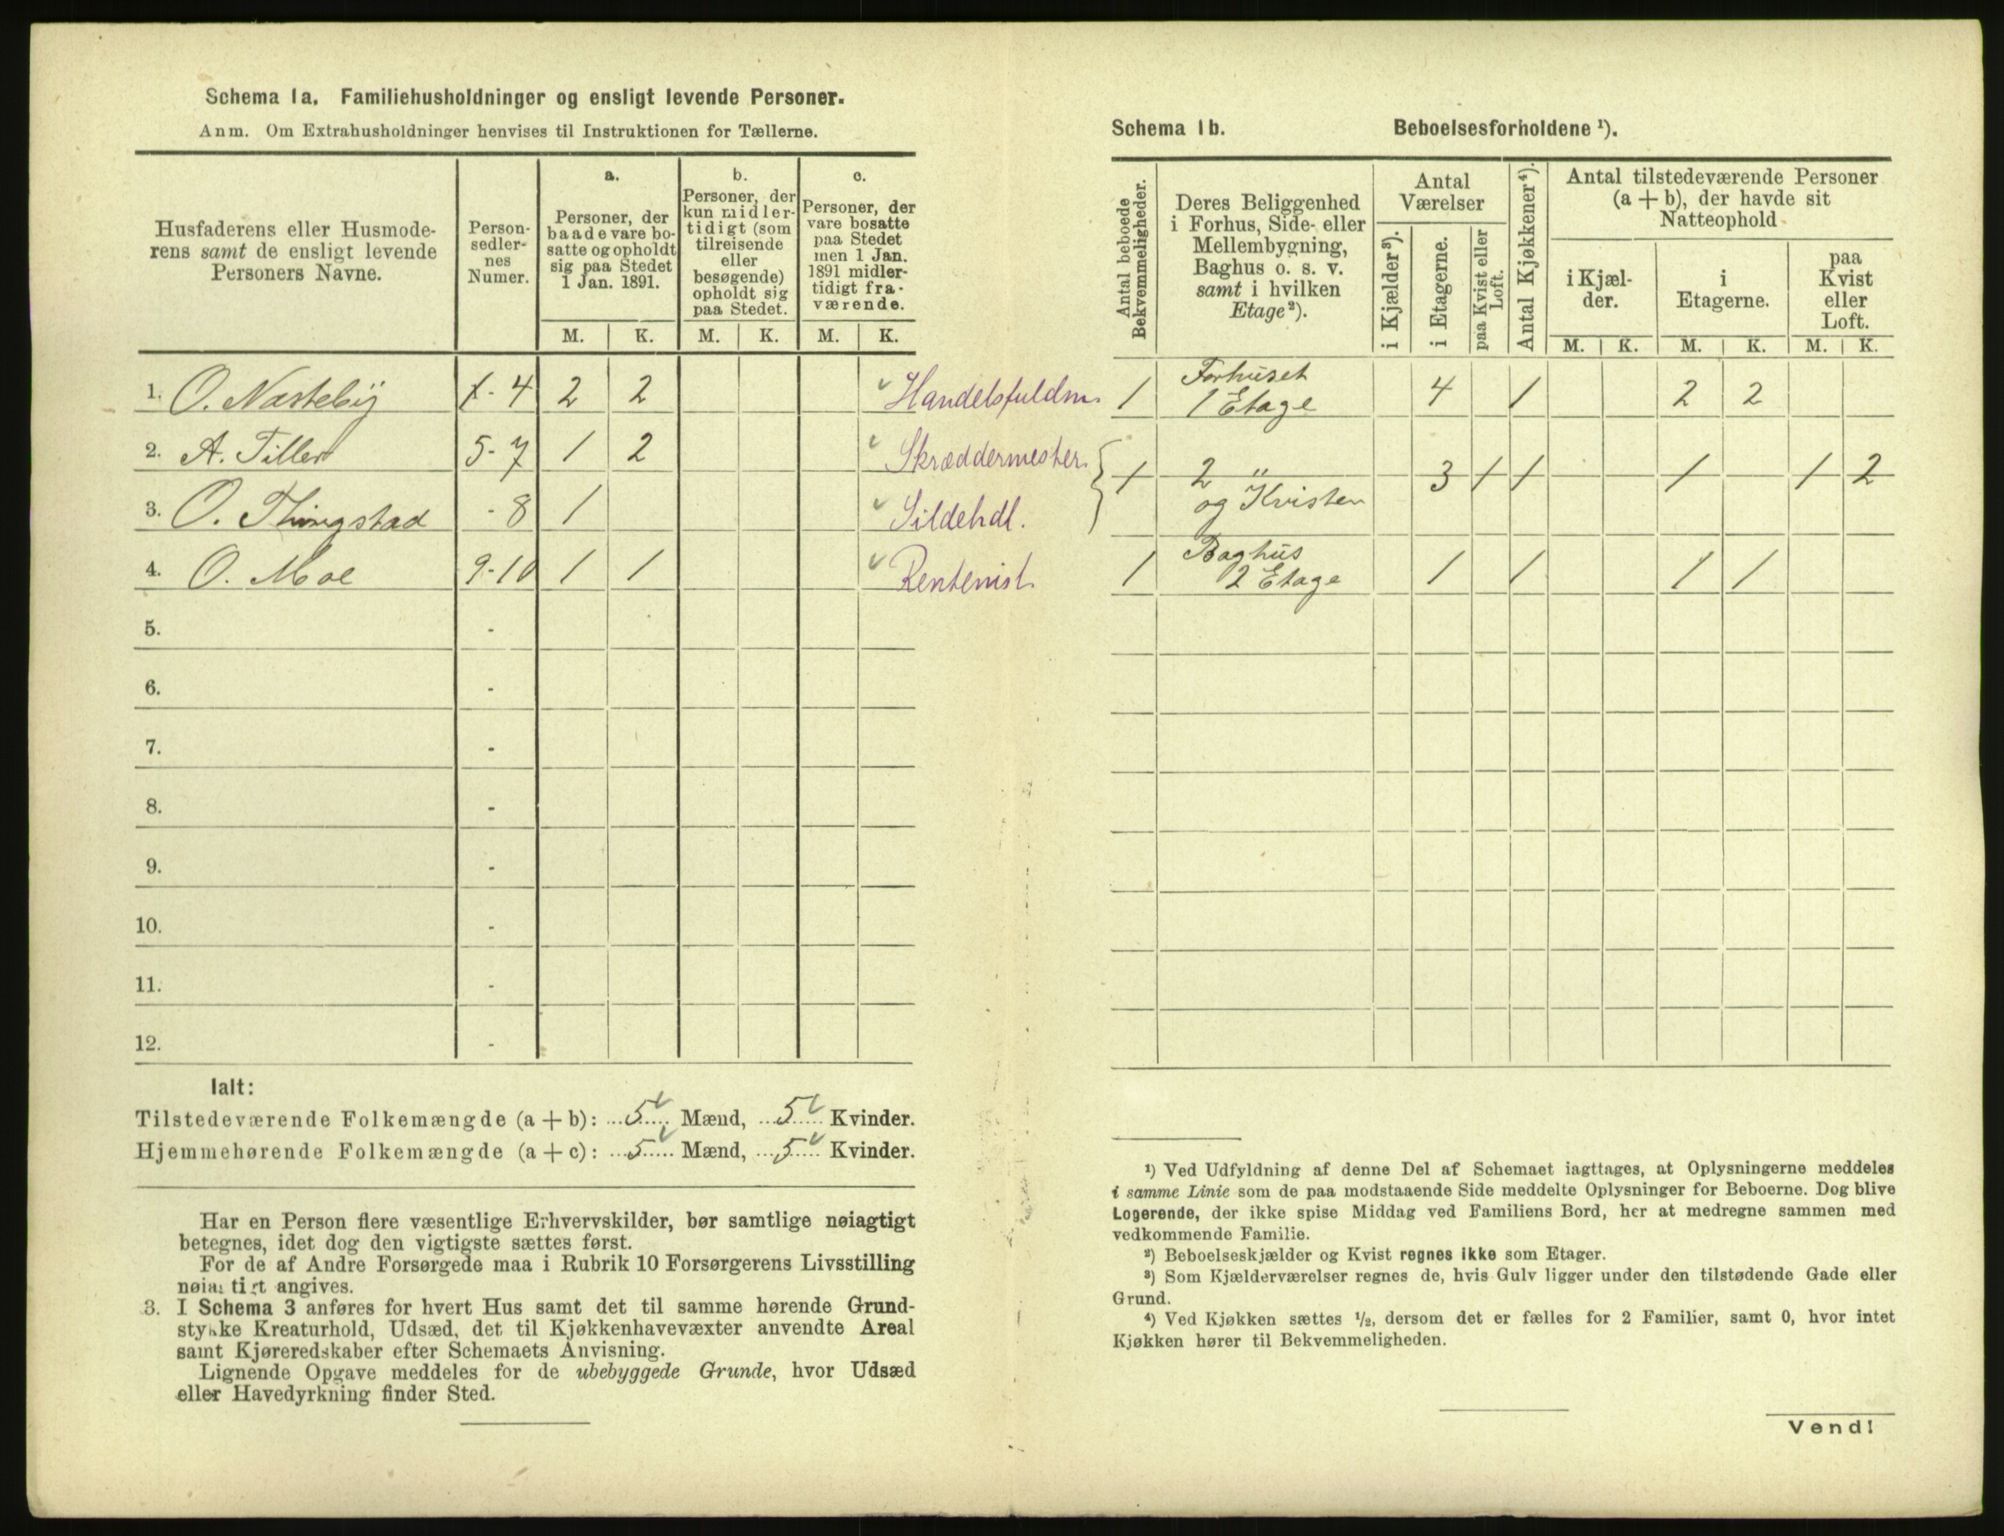 Schema 1a. Familiehusholdninger og ensligt levende Personer.
Anm. Om Extrahusholdninger henvises til Instruktionen for Tællerne.
Husfaderens eller Husmode-
rens samt de ensligt levende
Personers Navne.
Person-
sedler-
nes
Numer.
a.
Personer, der
baade vare bo-
satte og opholdt
sig paa Stedet
1 Jan. 1891.
b.
Personer, der
kun midler-
tidigt (som
tilreisende
eller
besøgende)
opholdt sig
paa Stedet.
c.
Personer, der
vare bosatte
paa Stedet
men 1 Jan.
1891 midler-
tidigt fra-
værende.
M. K. M. K. M. K.
1. O. Næsteby 1-4 2 2 Handelsfuldm.
2. A. Tiller 5-7 1 2 Skræddermester
3. O. Thingstad -8 1 Sildehdl.
4. O. Moe 9-10 1 1 Rentenist
5. -
6. -
7. -
8. -
9. -
10. -
11. -
12. -
Ialt:
Tilstedeværende Folkemængde (a + b): 5 Mænd, 5 Kvinder.
Hjemmehørende Folkemængde (a + c): 5 Mænd, 5 Kvinder.
Har en Person flere væsentlige Erhvervskilder, bør samtlige nøiagtigt
betegnes, idet dog den vigtigste sættes først.
For de af Andre Forsørgede maa i Rubrik 10 Forsørgerens Livsstilling
nøiagtigt angives.
3. I Schema 3 anføres for hvert Hus samt det til samme hørende Grund-
stykke Kreaturhold, Udsæd, det til Kjøkkenhavevæxter anvendte Areal
samt Kjøreredskaber efter Schemaets Anvisning.
Lignende Opgave meddeles for de ubebyggede Grunde, hvor Udsæd
eller Havedyrkning finder Sted.
Schema 1b. Beboelsesforholdene ¹).
Antal beboede
Bekvemmeligheder.
Deres Beliggenhed
i Forhus, Side- eller
Mellembygning,
Baghus o. s. v.
samt i hvilken
Etage²).
Antal
Værelser
i Kjælder³).
i Etagerne.
paa Kvist eller
Loft.
Antal Kjøkkener⁴).
Antal tilstedeværende Personer
(a + b), der havde sit
Natteophold
i Kjæl-
der.
i
Etagerne.
paa
Kvist
eller
Loft.
M. K. M. K. M. K.
1 Forhuset
1 Etage 4 1 2 2
1 2 " 3 1 1 1 1 2
og Kvisten
1 Baghus
2 Etage 1 1 1 1
¹) Ved Udfyldning af denne Del af Schemaet iagttages, at Oplysningerne meddeles
i samme Linie som de paa modstaaende Side meddelte Oplysninger for Beboerne. Dog blive
Logerende, der ikke spise Middag ved Familiens Bord, her at medregne sammen med
vedkommende Familie.
²) Beboelseskjælder og Kvist regnes ikke som Etager.
³) Som Kjælderværelser regnes de, hvis Gulv ligger under den tilstødende Gade eller
Grund.
⁴) Ved Kjøkken sættes ½, dersom det er fælles for 2 Familier, samt 0, hvor intet
Kjøkken hører til Bekvemmeligheden.
Vend!